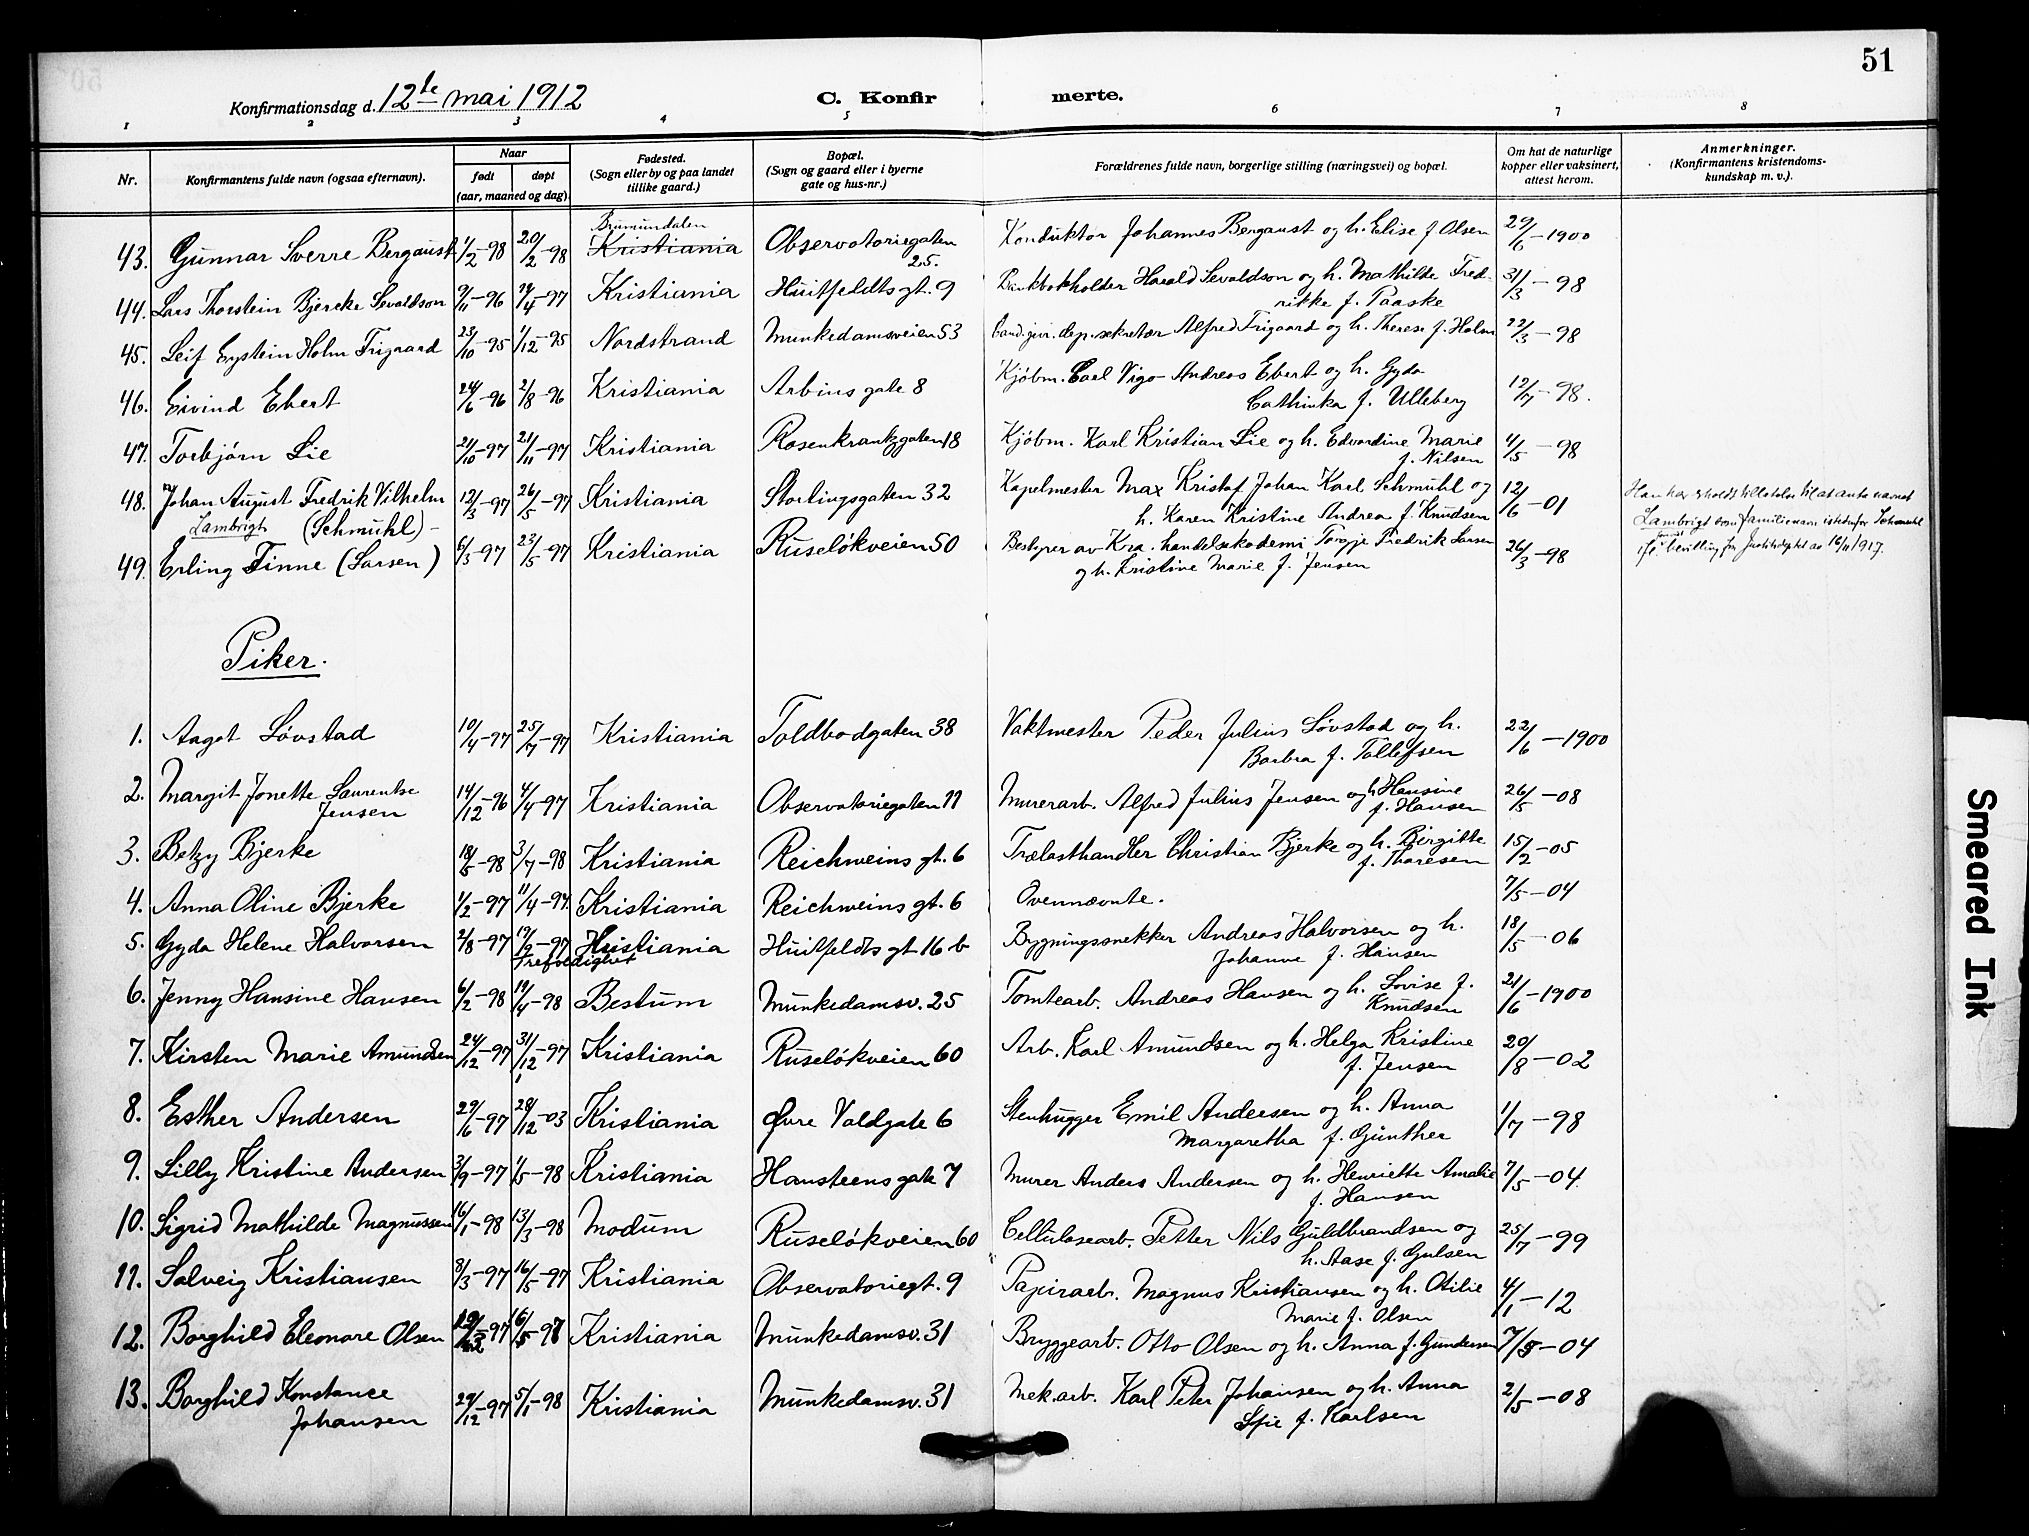 51
Konfirmationsdag d. 12te mai 1912
C. Konfir merte.
1 2 3 4 5 6 7 8
Nr. Konfirmantens fulde navn (ogsaa efternavn). Naar født døpt (aar, maaned og dag) Fødested. (Sogn eller by og paa landet tillike gaard.) Bopæl. (Sogn og gaard eller i byerne gate og hus-nr.) Forældrenes fulde navn, borgerlige stilling (næringsvei) og bopæl. Om hat de naturlige kopper eller vaksinert, attest herom. Anmerkninger. (Konfirmantens kristendomskundskap m. v.).
Brumundalen
43. Gunnar Sverre Bergaust 1/2-98 20/2-98 Kristiania Observatoriegaten 25. Konduktør Johannes Bergaust og h. Elise f. Olsen 29/6-1900
44. Lars Thorstein Bjercke Sevaldson 9/11-96 19/4-97 Kristiania Huitfeldts gt. 9 Bankbokholder Harald Sevaldson og h. Mathilde Fred-
rikke f. Paaske 31/3-98
45. Leif Eystein Holm Frigaard 23/10-95 1/12-95 Nordstrand Munkedamsveien 53 Cand. jur. dep. sekretær Alfred Frigaard og h. Therese f. Holm 22/3-98
46. Eivind Ebert 24/6-96 2/8-96 Kristiania Arbins gate 8 Kjøbm. Carl Vigo Andreas Ebert og h. Gyda
Cathinka f. Ulleberg 12/7-98.
47. Torbjørn Lie 21/10-97 21/11-97 Kristiania Rosenkrantzgaten 18 Kjøbm. Karl Kristian Lie og h. Edvardine Marie
f. Nilsen 4/5-98
48. Johan August Fredrik Vilhelm 12/3-97 26/5-97 Kristiania Stortingsgaten 32 Kapelmester Max Kristof Johan Karl Schmuhl og 12/6-01
Lambrigt (Schmuhl)- h. Karen Kristine Andrea f. Knudsen
Han har erholdt tillatelse til at anta navnet
Lambrigt som familienavn istedenfor Schmuhl
ifø. bevilling fra Justitsdeptet av 16/11 1917.
49. Erling Finne (Larsen) 6/3-97 23/5-97 Kristiania Ruseløkveien 50 Bestyrer av Kra. handelsakademi Torgje Fredrik Larsen
og h. Kristine Marie f. Jensen 26/3-98
Piker.
1. Aagot Løvstad 10/4-97 25/7-97 Kristiania Toldbodgaten 38 Vaktmester Peder Julius Løvstad og h.
Barbra f. Tollefsen 22/6-1900
2. Margit Jonette Laurentse
Jensen 14/12-96 4/4-97 Kristiania Observatoriegaten 11 Murerarb. Alfred Julius Jensen og h. Hansine
f. Hansen 26/5-08
3. Betzy Bjerke 18/5-98 3/7-98 Kristiania Reichweins gt. 6 Trælasthandler Christian Bjerke og h. Birgitte
f. Thoresen 15/2-05
4. Anna Oline Bjerke 1/2-97 11/4-97. Kristiania Reichweins gt. 6 Ovennævnte. 7/5-04
5. Gyda Helene Halvorsen 2/8-97 19/9-97 Kristiania Huitfeldts gt 16 b Bygningssnekker Andreas Halvorsen og h.
Trefoldighet Johanne f. Hansen 18/5-06
6. Jenny Hansine Hansen 6/2-98 19/4-98 Bestum Munkedamsv. 25 Tomtearb. Andreas Hansen og h. Lovise f.
Knudsen 21/6-1900
7. Kirsten Marie Amundsen 24/12-97 31/12-97 Kristiania Ruseløkveien 60 Arb. Karl Amundsen og h. Helga Kristine
f. Jensen 20/8-02
8. Esther Andersen 29/6-97 28/12-03 Kristiania Øvre Voldgate 6 Stenhugger Emil Andersen og h. Anna
Margaretha f. Günther 1/7-98
9. Lilly Kristine Andersen 3/9-97 1/5-98 Kristiania Hansteens gate 7 Murer Anders Andersen og h. Henriette Amalie
f. Hansen 7/5-04.
10. Sigrid Mathilde Magnussen 16/1-98 13/3-98 Modum Ruseløkveien 60 Cellulosearb. Petter Nils Guldbrandsen og
h. Aase f. Gulsen 25/7-99
11. Solveig Kristiansen 8/3-97 16/5-97 Kristiania Observatoriegt. 9 Papirarb. Magnus Kristiansen og h. Otilie
Marie f. Olsen 4/1-12
12. Borghild Eleonore Olsen Kristiania Munkedamsv. 31 Bryggearb. Otto Olsen og h. Anna f. Gundersen 7/5-04
13. Borghild Konstance
Johansen 29/12-97 5/1-98 Kristiania Munkedamsv. 31 Mek. arb. Karl Peter Johansen og h. Anna
f. Karlsen 2/5-08
Smeared Ink